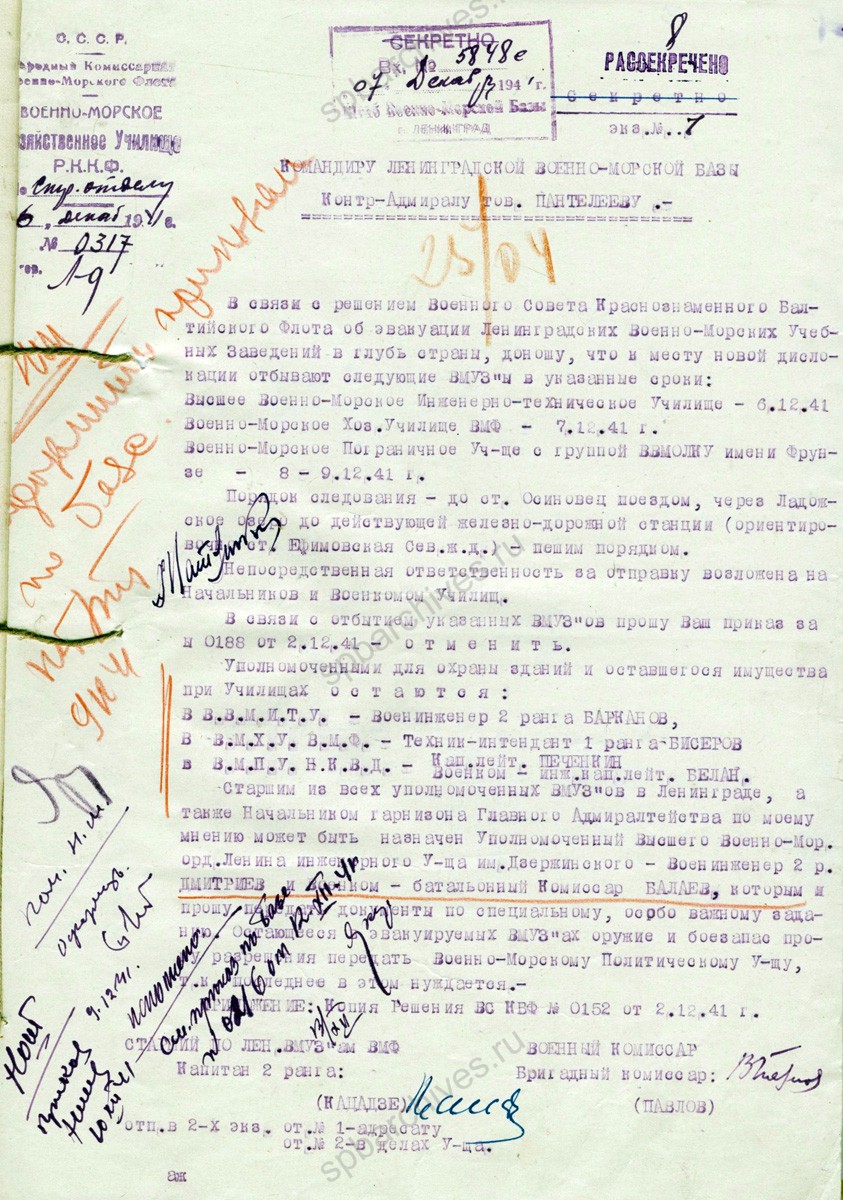 С.С.С.Р.
родный Комиссариат
оенно-Морского Флота
ВОЕННО-МОРСКОЕ
зяйственное Училище
Р.К.К.Ф.
Стр. отделу
6 декаб 1941 г.
№ 0317
гор. Л-д
СЕКРЕТНО
Вх. № 5848с
07 Декабр 1941 г.
Штаб Военно-Морской Базы
г. ЛЕНИНГРАД
8
РАССЕКРЕЧЕНО
Секретно
экз.№ 1
КОМАНДИРУ ЛЕНИНГРАДСКОЙ ВОЕННО-МОРСКОЙ БАЗЫ
Контр-Адмиралу тов. ПАНТЕЛЕЕВУ .-
25/04
В связи с решением Военного Совета Краснознаменного Бал-
тийского Флота об эвакуации Ленинградских Военно-Морских Учеб-
ных Заведений в глубь страны, доношу, что к месту новой дисло-
кации отбывают следующие ВМУЗ"ы в указанные сроки:
Высшее Военно-Морское Инженерно-техническое Училище - 6.12.41
Военно-Морское Хоз.Училище ВМФ - 7.12.41 г.
Военно-Морское Пограничное Уч-ще с группой ВВМОЛКУ имени Фрун-
зе - 8 - 9.12.41 г.
Порядок следования - до ст. Осиновец поездом, через Ладож-
ское озеро до действующей железно-дорожной станции (ориентиро-
вочно ст. Ефимовская Сев.ж.д.) - пешим порядком.
Непосредственная ответственность за отправку возложена на
Начальников и Военкомом Училищ.
В связи с отбытием указанных ВМУЗ"ов прошу Ваш приказ за
№ 0188 от 2.12.41 - отменить.
Уполномоченными для охраны зданий и оставшегося имущества
при Училищах остаются:
В В.В.М.И.Т.У. - Военинженер 2 ранга БАРКАНОВ,
В В.М.Х.У. В.М.Ф. - Техник-интендант 1 ранга-БИСЕРОВ
в В.М.П.У. Н.К.В.Д. - Кап.лейт. ПЕЧЕНКИН
Военком - инж.кап.лейт. БЕЛАН.
Старшим из всех уполномоченных ВМУЗ"ов в Ленинграде, а
также Начальником гарнизона Главного Адмиралтейства по моему
мнению может быть назначен Уполномоченный Высшего Военно-Мор.
орд.Ленина инженерного У-ща им.Дзержинского - Военинженер 2 р.
ДМИТРИЕВ и Военком - батальонный Комиссар БАЛАЕВ, которым и
прошу передать документы по специальному, особо важному зада-
нию. Остающееся в эвакуируемых ВМУЗ"ах оружие и боезапас про-
шу разрешения передать Военно-Морскому Политическому У-щу,
т.к. последнее в этом нуждается.-
ПРИЛОЖЕНИЕ: Копия Решения ВС КБФ № 0152 от 2.12.41 г.
СТАРШИЙ ПО ЛЕН.ВМУЗ"ам ВМФ
Капитан 2 ранга:
(КАЦАДЗЕ)
ВОЕННЫЙ КОМИССАР
Бригадный комиссар:
(ПАВЛОВ)
отп.в 2-х экз. от.№ 1-адресату
от.№ 2-в делах У-ща.
аж
НШ
по базе
9.12.41.
исполнено.
См. приказ по базе
№ 0216 от 12.XII-41г
13/XII
spbarchives.ru
spbarchives.ru
spbarchives.ru
spbarchives.ru